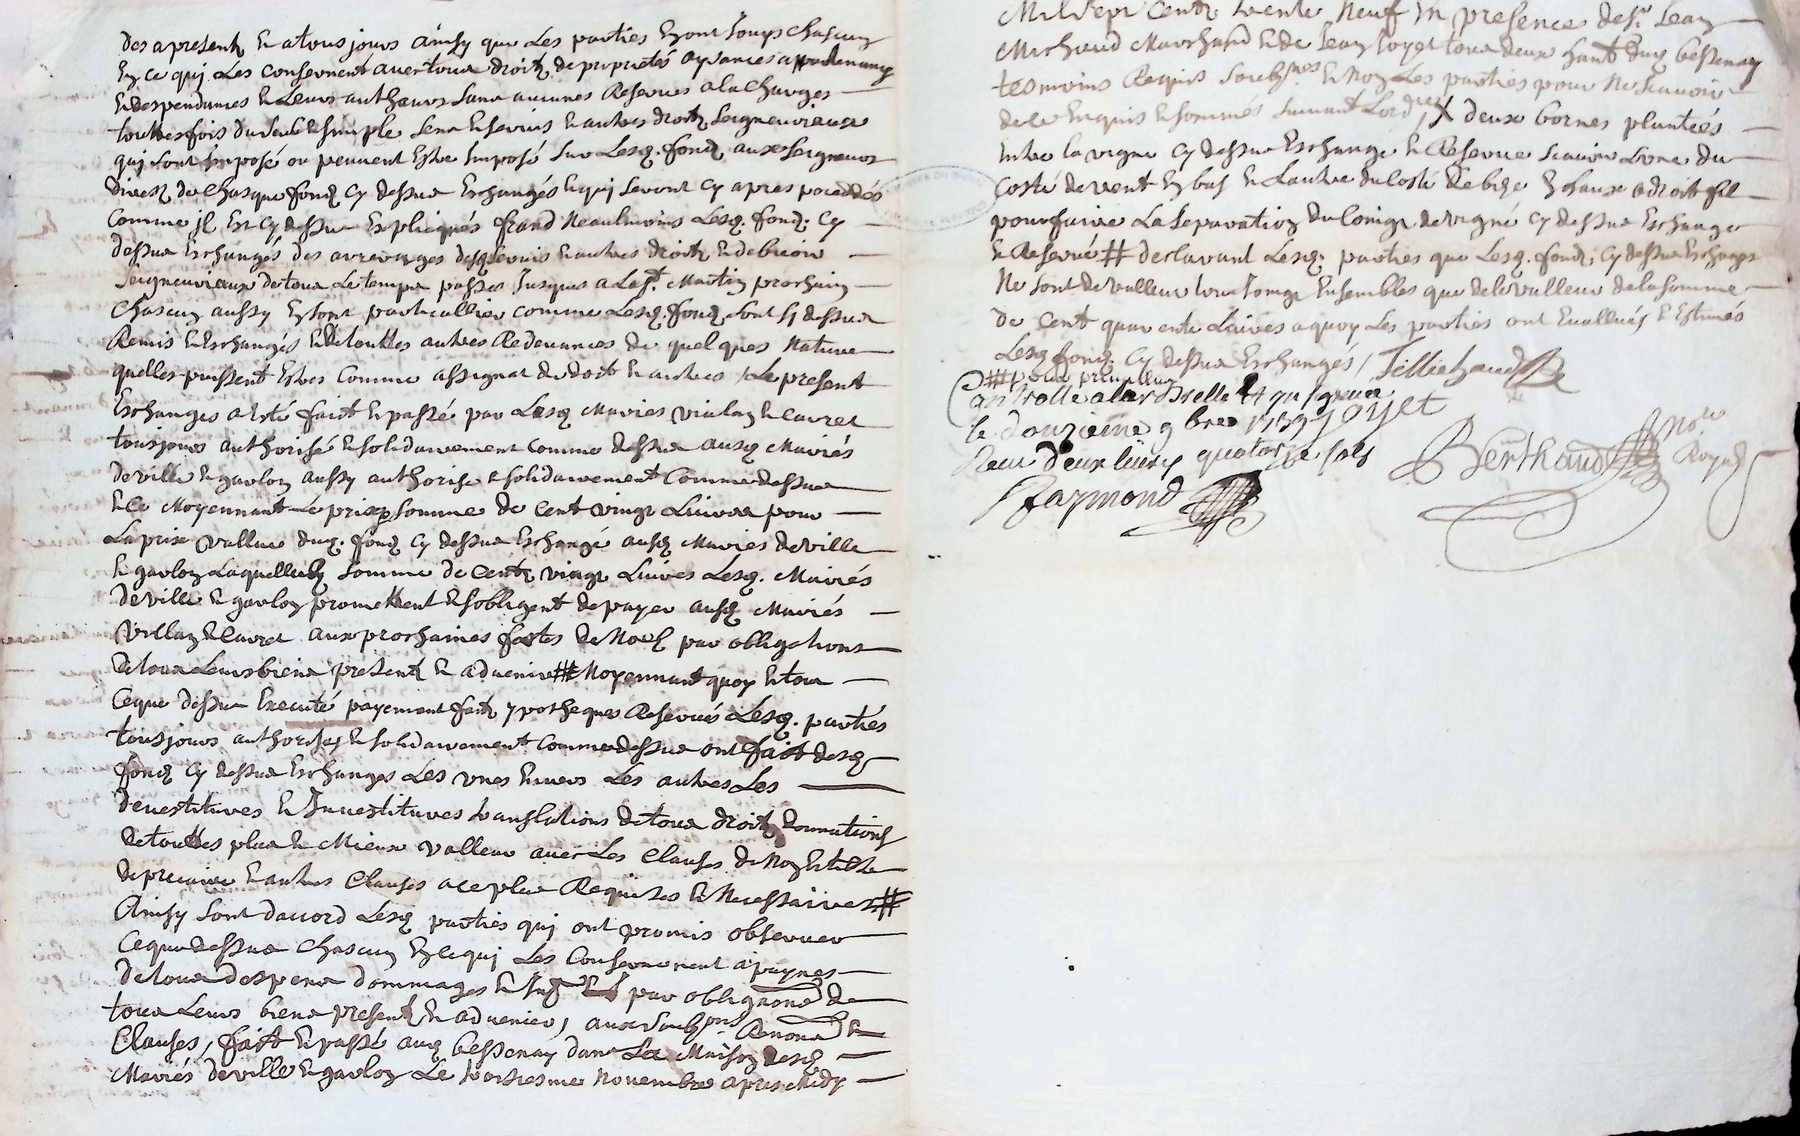 Des apresent & atousjours Ainsy que Les parties Ezont Jouys chascun
En ce quj Les consernent avec tous droitz de proprietés aysances appartenances
& despendances & Leurs autheurs sans aucunes Reserves ala Charges
touttesfois du seul & simple sens & servis & autres droitz seigneuriaux
quj sont imposé ou peuvent Estre Imposé sur Lesq. fondz aux seigneurs
directz de chasque fondz cy dessus Eschangés & quj seront cy apres possedés
Comme jl Est cy dessus Explicqués frand Neaulmoins Lesq. fondz cy
dessus Eschangés des arrerages desq servis & autres droitz & debvoir
Seigneuriaux de tous Le temps passés Jusques a La St. Martin prochain
Chascun aussy Ez sont particullier comme Lesq. fondz sont sy dessus
Remis & Eschangés & de touttes autres Redevances de quelques Nature
quelles puissent Estres Comme assignat de dost & autres / Le present
Eschanges a Esté faict & passé par Lesq Mariés viallon & Cavret
tousjours authorisé & solidairement comme dessus ausq Mariés
Deville & gavlon aussy authorise & solidairement Comme dessus
& Ce Moyennant Le prix & somme de cent vingt Livres pour
La prix vallue dusq. fondz cy dessus Eschangé ausq Mariés deville
& gavlon Laquelle somme de cent vingt Livres Lesq. Mariés
Deville & gavlon promettent & sobligent de payer ausq Mariés
viallon & Cavret aux prochaines festes de Noel par obligations
de tous Leurs biens present & advenir # Moyennant quoy & tous
Ceque dessus Executé payement faict ypotheques Reservés Lesq. partiés
tousjours authorisés & solidairement comme dessus ont faict desq
fondz cy dessus Eschanges Les unes Envers Les autres Les
devestitures & Investitures translations de tous droitz donnations
De touttes plus & Mieux valleur avec Les Clauses de
de precaire & autres Clauses ace plus Requises & Necessaires #
Ainsy sont daccord Lesq parties quj ont promis observer
Ceque dessus Chascun En cequj Les Consernent apaynes
de tous despens dommages & par obligaons de
tous Leurs biens present & advenir, aux soubzons Renonons &
Clauses, faict & passé aud bessenay dans La Maison desq
Mariés deville & gavlon Le troisiesme Novembre apres Midy
Mil sept Centz trente Neuf En presence de sr Jean
Michaud Marchand & de Jean toyet tous deux habt dud bessenay
tesmoins Requis soubznes & Non Les parties pour Ne scavoir
de ce Enquis & sommés suivant Lordre X deux bornes plantées
Entre la vigne cy dessus Eschange & Reservée scavoir Lune du
Costé de vent Ez bas & Lautre du Costé de bize Ez haux a droit fil
pour faire La separation du loingt de vigne cy dessus Eschange
& Reservé # declarant Lesq. parties que Lesq. fondz cy dessus Eschanges
Ne sont de valleur tous Ensembles que de la valleur de la somme
de cent quarente Livres aquoy Les parties ont Evalluées & Estimés
Lesq fondz cy dessus Eschangés / Tilliehaud
# pour
Controlle alarbrelle
le douzieme 9bre 1739 Joyet
Reçu deux livres quatorze sols
Raymond
Berthaud
Nore
Royal